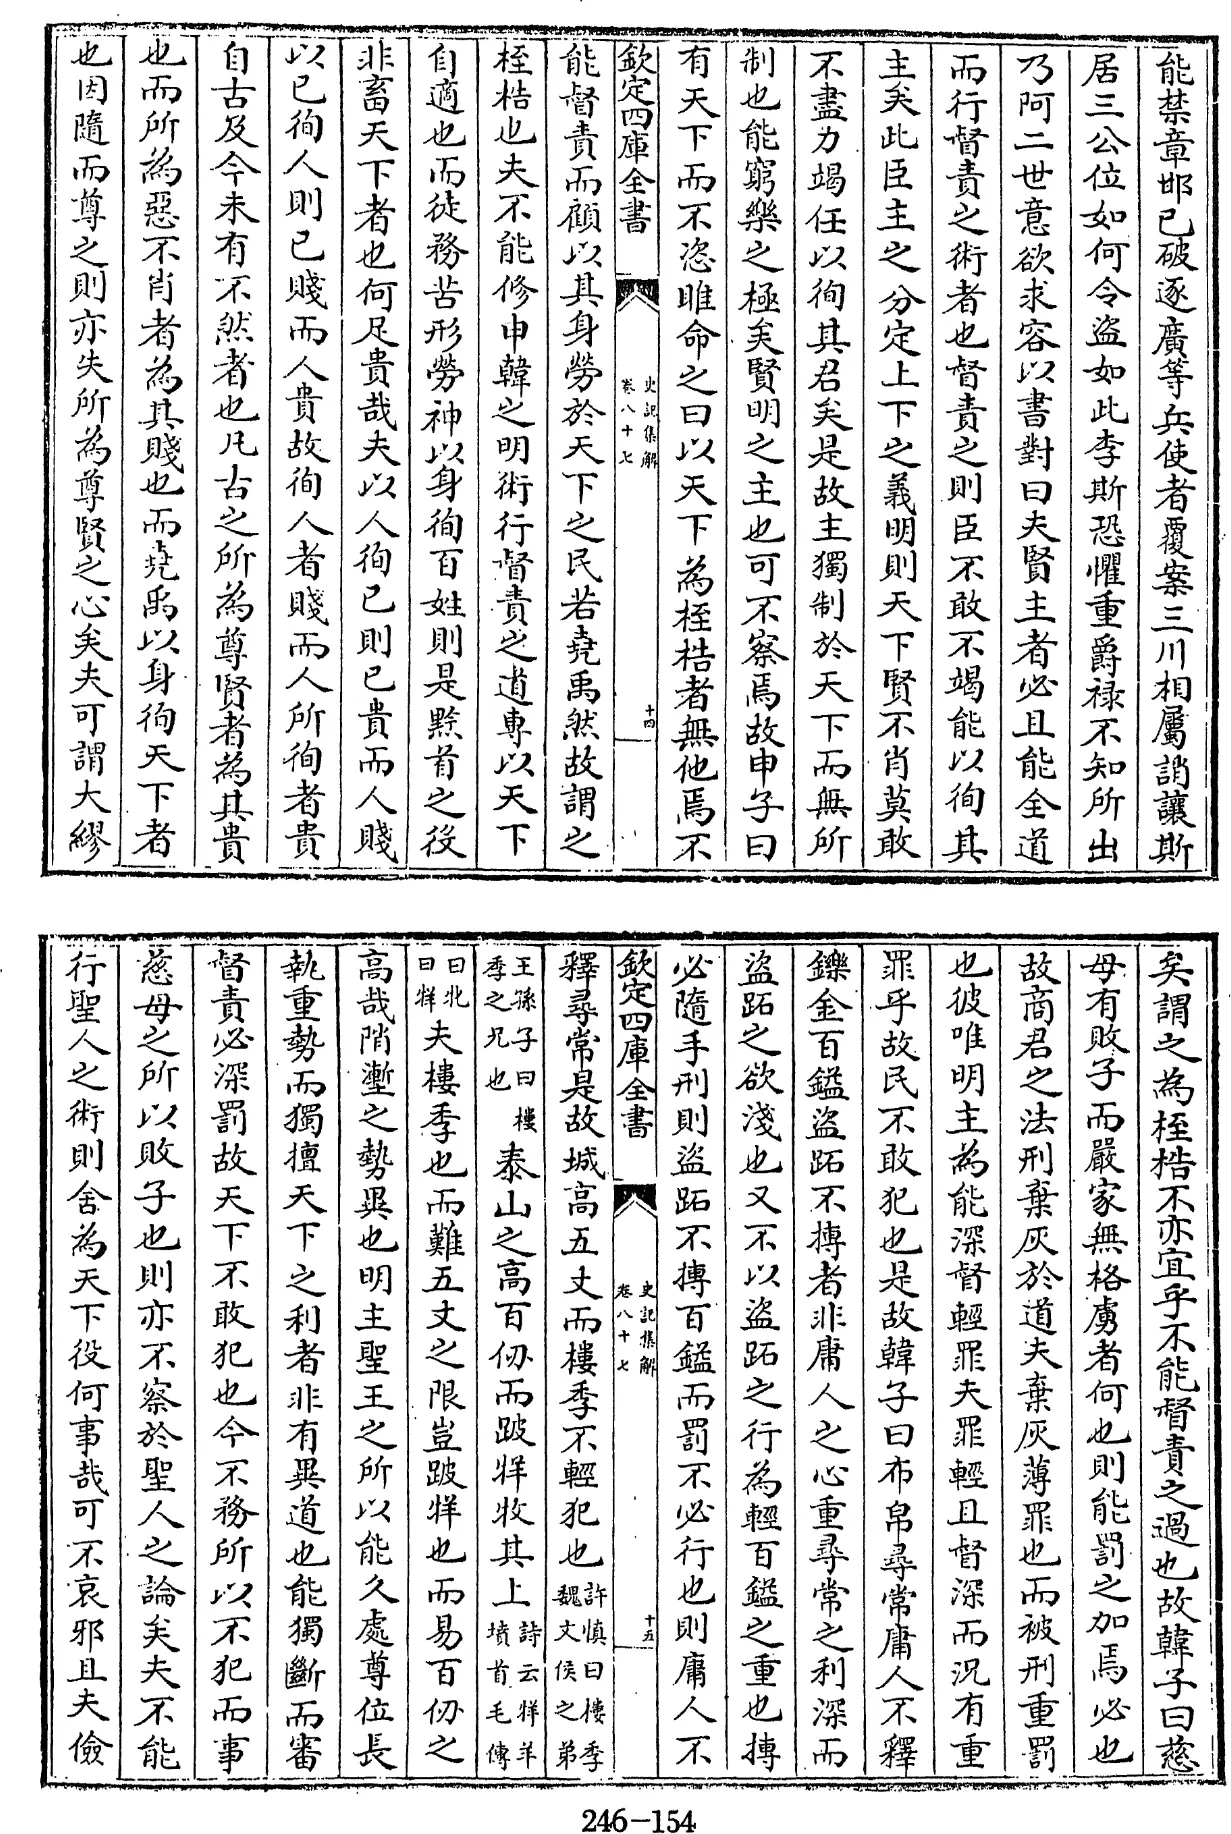 能禁章邯已破逐廣等兵使者覆案三川相屬誚讓斯
居三公位如何令盜如此李斯恐懼重爵祿不知所出
乃阿二世意欲求容以書對曰夫賢主者必且能全道
而行督責之術者也督責之則臣不敢不竭能以徇其
主矣此臣主之分定上下之義明則天下賢不肖莫敢
不盡力竭任以徇其君矣是故主獨制於天下而無所
制也能窮樂之極矣賢明之主也可不察焉故申子曰
有天下而不恣睢命之曰以天下為桎梏者無他焉不
欽定四庫全書
史記集解
卷八十七
十四
能督責而顧以其身勞於天下之民若堯禹然故謂之
桎梏也夫不能修申韓之明術行督責之道專以天下
自適也而徒務苦形勞神以身徇百姓則是黔首之役
非畜天下者也何足貴哉夫以人徇己則己貴而人賤
以己徇人則己賤而人貴故徇人者賤而人所徇者貴
自古及今未有不然者也凡古之所為尊賢者為其貴
也而所為惡不肖者為其賤也而堯禹以身徇天下者
也因隨而尊之則亦失所為尊賢之心矣夫可謂大繆
矣謂之為桎梏不亦宜乎不能督責之過也故韓子曰慈
母有敗子而嚴家無格虜者何也則能罰之加焉必也
故商君之法刑棄灰於道夫棄灰薄罪也而被刑重罰
也彼唯明主為能深督輕罪夫罪輕且督深而況有重
罪乎故民不敢犯也是故韓子曰布帛尋常庸人不釋
鑠金百鎰盜跖不搏者非庸人之心重尋常之利深而
盜跖之欲淺也又不以盜跖之行為輕百鎰之重也搏
必隨手刑則盜跖不搏百鎰而罰不必行也則庸人不
欽定四庫全書
史記集解
卷八十七
十五
釋尋常是故城高五丈而樓季不輕犯也許慎曰樓季魏文侯之弟
王孫子曰樓季之兄也泰山之高百仞而跛牂牧其上詩云牂羊墳首毛傳
曰牝曰牂夫樓季也而難五丈之限豈跛牂也而易百仞之
高哉陗塹之勢異也明主聖王之所以能久處尊位長
執重勢而獨擅天下之利者非有異道也能獨斷而審
督責必深罰故天下不敢犯也今不務所以不犯而事
慈母之所以敗子也則亦不察於聖人之論矣夫不能
行聖人之術則舍為天下役何事哉可不哀邪且夫儉
246-154